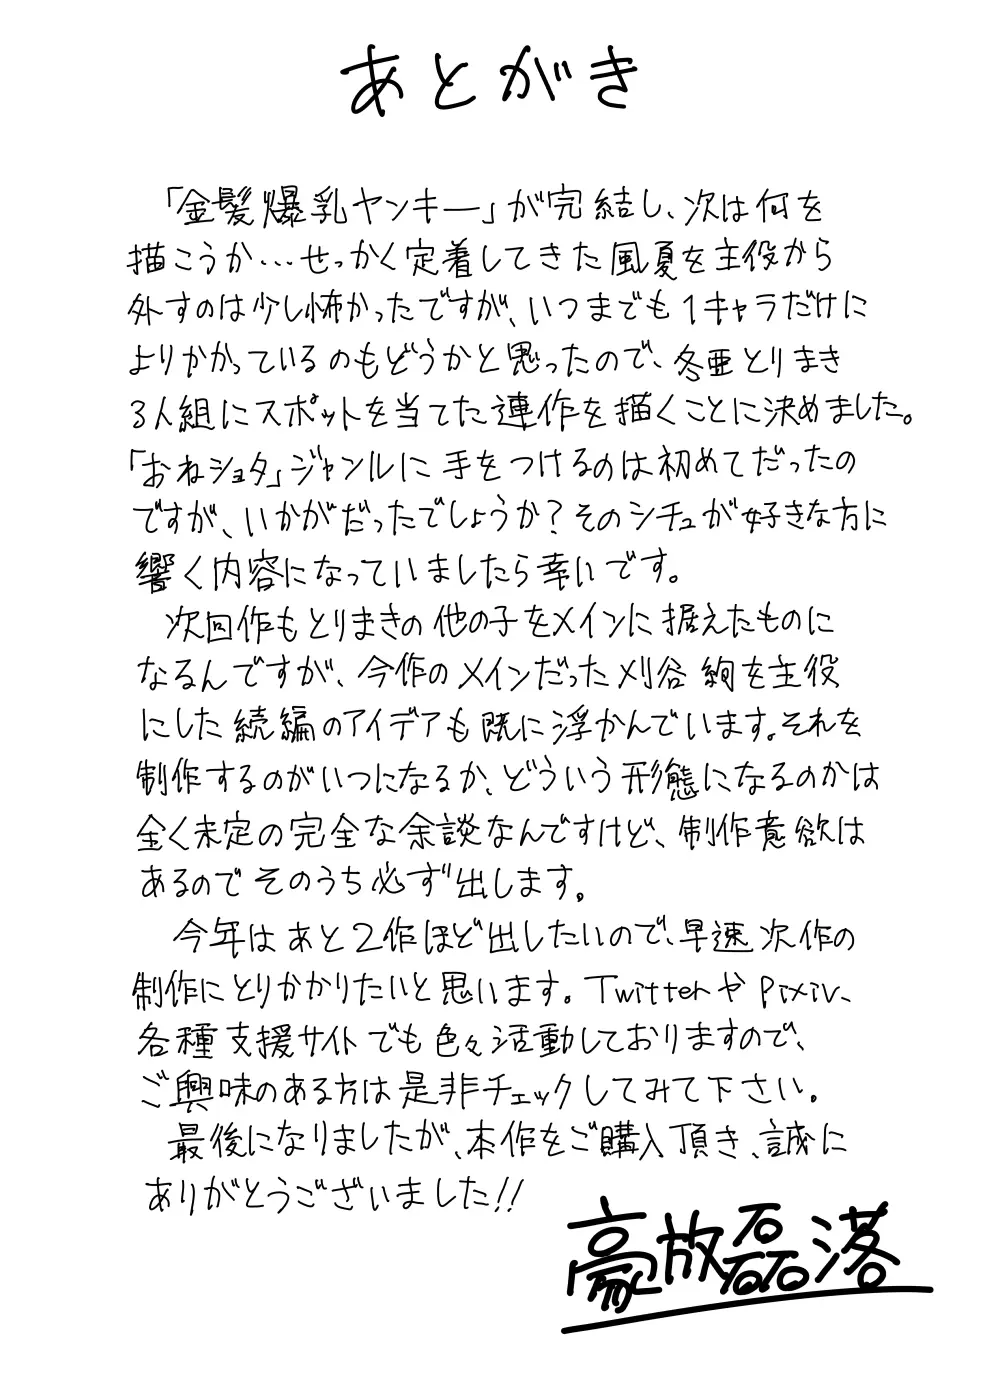 あとがき
「金髪爆乳ヤンキー」が完結し、次は何を
描こうか…せっかく定着してきた風夏を主役から
外すのは少し怖かったですが、いつまでも1キャラだけに
よりかかっているのもどうかと思ったので、冬亜とりまき
3人組にスポットを当てた連作を描くことに決めました。
「おねショタ」ジャンルに手をつけるのは初めてだったの
ですが、いかがだったでしょうか？そのシチュが好きな方に
響く内容になっていましたら幸いです。
次回作もとりまきの他の子をメインに据えたものに
なるんですが、今作のメインだった刈谷絢を主役
にした続編のアイデアも既に浮かんでいます。それを
制作するのがいつになるか、どういう形態になるのかは
全く未定の完全な余談なんですけど、制作意欲は
あるのでそのうち必ず出します。
今年はあと2作ほど出したいので、早速次作の
制作にとりかかりたいと思います。Twitterやpixiv、
各種支援サイトでも色々活動しておりますので、
ご興味のある方は是非チェックしてみて下さい。
最後になりましたが、本作をご購入頂き、誠に
ありがとうございました!!
豪放磊落